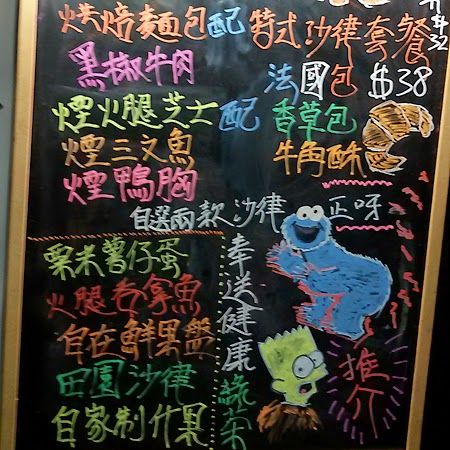 烘焙麵包配特式沙律套餐 $32
黑椒牛肉 法國包 $38
煙火腿芝士配香草包
煙三文魚 牛角酥
煙鴨胸
自選兩款沙律 正呀
粟米薯仔蛋
火腿吞拿魚
自在鮮果盤
田園沙律
自家制什果
奉送健康蔬菜
推介